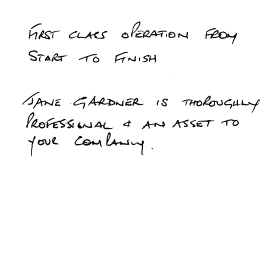 FIRST CLASS OPERATION FROM
START TO FINISH
JANE GARDNER IS THOROUGHLY
PROFESSIONAL & AN ASSET TO
YOUR COMPANY.